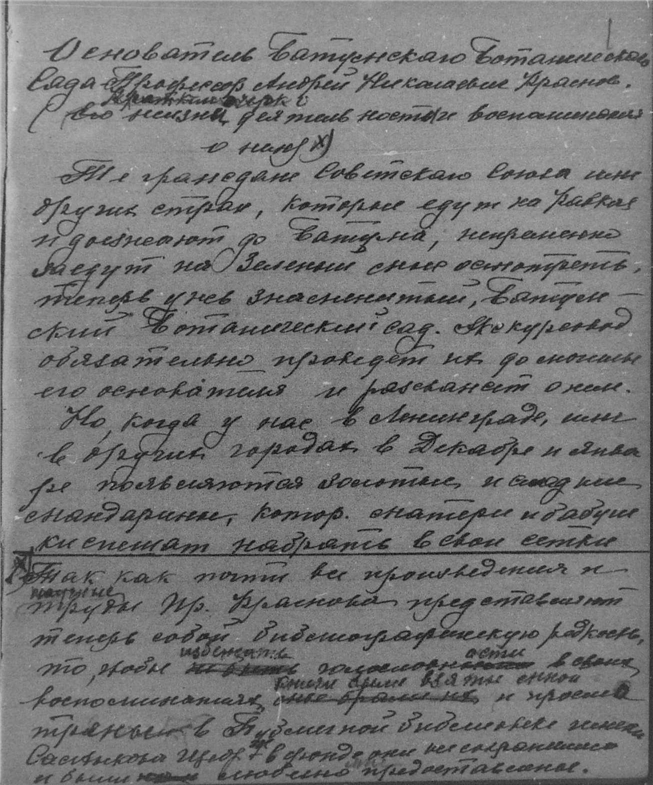 1
Основатель Батумскаго Ботаническаго
Сада Профессор Андрей Николаевич Краснов.
Краткий очерк
(Его жизнь, деятельность и воспоминания
о нем) х)
Те граждане Советскаго Союза или
других стран, которые едут на Кавказ
и доезжают до Батума, непременно
заедут на Зеленый мыс осмотреть,
теперь уже знаменитый, Батум-
ский Ботанический сад. Экскурсовод
обязательно проведет их до могилы
его основателя и разскажет о нем.
Но, когда у нас в Ленинграде, или
в других городах в Декабре и Янва
ре появляются золотые и сладкие
мандарины, котор. матери и бабуш
ки спешат набрать в свои сетки
х) Так как почти все произведения и
научные
труды Пр. Краснова представляют
теперь собой библиографическую редкость,
избежать ости
то, чтобы голословн в своих
книги были взяты мной
воспоминаниях, и просмо
трены в Публичной библиотеке имени
Салтыкова Щедр в фонде они сохранились
и были любезно предоставлены.